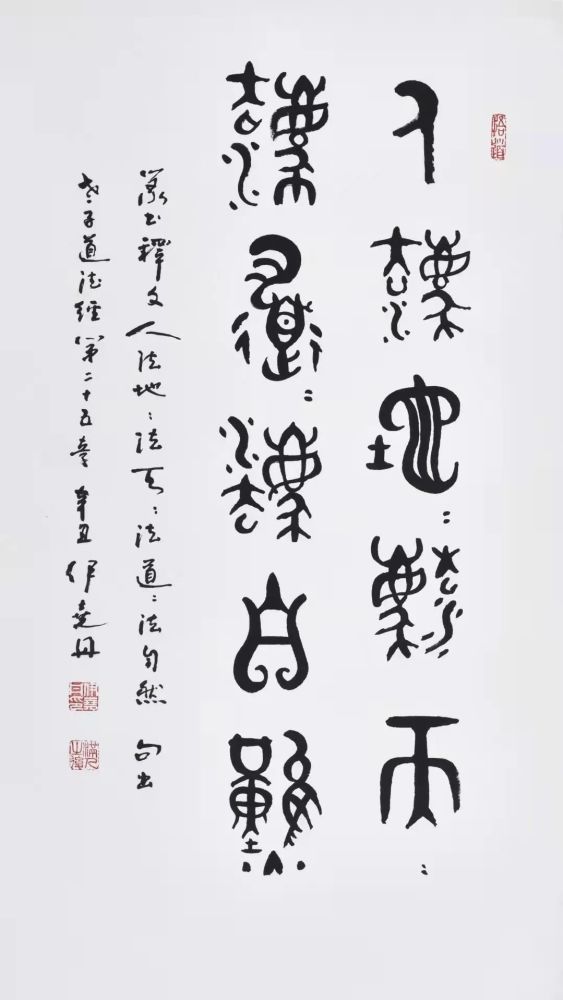 人灋地〻灋天〻
灋道〻灋自然
篆书釋文人法地〻法天〻法道〻法自然 句出
老子道德經第二十五章 辛丑 伊堯丹